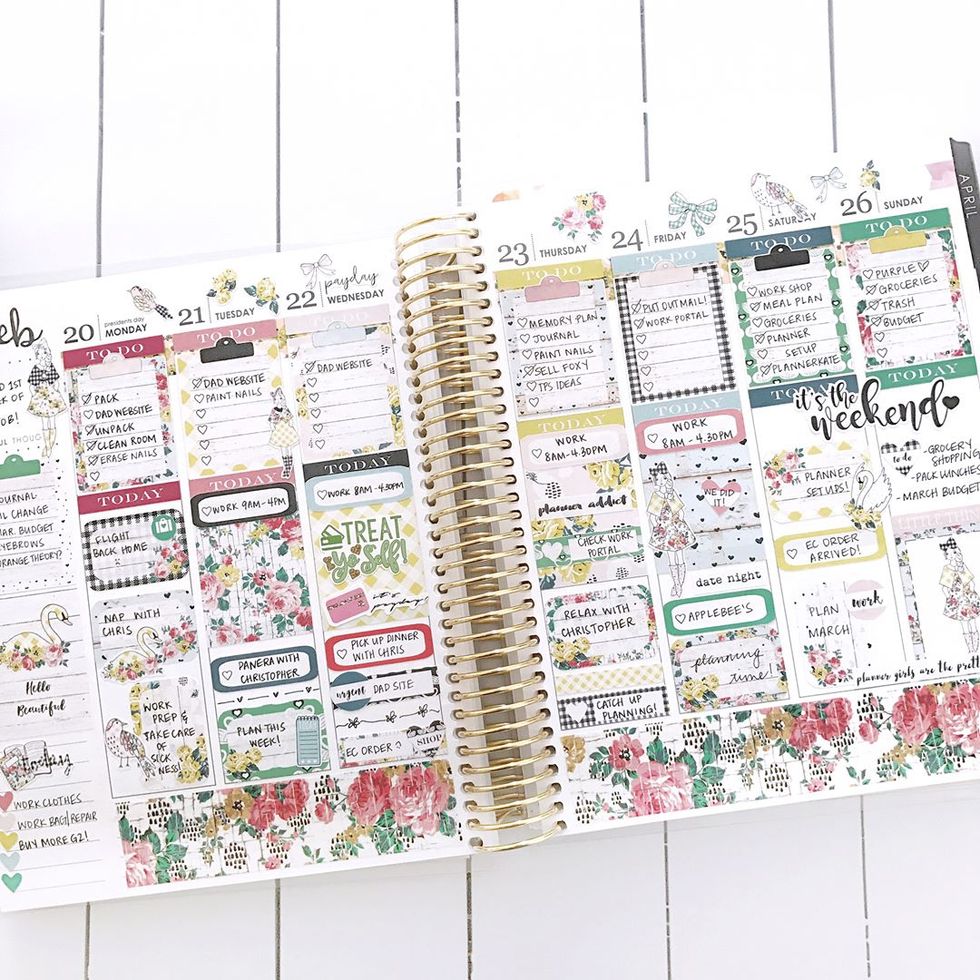 20
presidents day
MONDAY
TO DO
PACK
DAD WEBSITE
UNPACK
CLEAN ROOM
ERASE NAILS
TODAY
FLIGHT
BACK HOME
NAP WITH
CHRIS
WORK
PREP &
TAKE CARE
OF
SICK
NESS!
21
TUESDAY
TO DO
DAD WEBSITE
PAINT NAILS
TODAY
WORK 9AM-4PM
PANERA WITH
CHRISTOPHER
PLAN THIS
WEEK!
22
payday
WEDNESDAY
TO DO
DAD WEBSITE
TODAY
WORK 8AM-4:30PM
TREAT
Yo Self!
it's payday!
PICK UP DINNER
WITH CHRIS
urgent
DAD SITE
EC ORDER
SHOP
eb
1ST
OF
JOB!
JOURNAL
CHANGE
MAR. BUDGET
EYEBROWS
ORANGE THEORY?
Hello
Beautiful
WORK CLOTHES
WORK BAG/REPAIR
BUY MORE G2!
23
THURSDAY
TO DO
MEMORY PLAN
JOURNAL
PAINT NAILS
SELL FOXY
TPS IDEAS
TODAY
WORK
8AM-4:30PM
planner addict
CHECK WORK
PORTAL
RELAX WITH
CHRISTOPHER
CATCH UP
PLANNING!
24
FRIDAY
TO DO
PUT OUT MAIL!
WORK PORTAL
TODAY
WORK
8AM-4:30PM
WE DID
IT!
date night
APPLEBEE'S
planning
time!
25
SATURDAY
TO DO
WORK SHOP
MEAL PLAN
GROCERIES
PLANNER
SETUP
PLANNERKATE
TODAY
it's the
weekend
PLANNER
SET UPS!
EC ORDER
ARRIVED!
PLAN
MARCH
work
planner girls are the prett
26
SUNDAY
TO DO
PURPLE
GROCERIES
TRASH
BUDGET
TODAY
to do
-GROCERY
SHOPPING
-PACK LUNCH
-MARCH BUDGET
APRIL